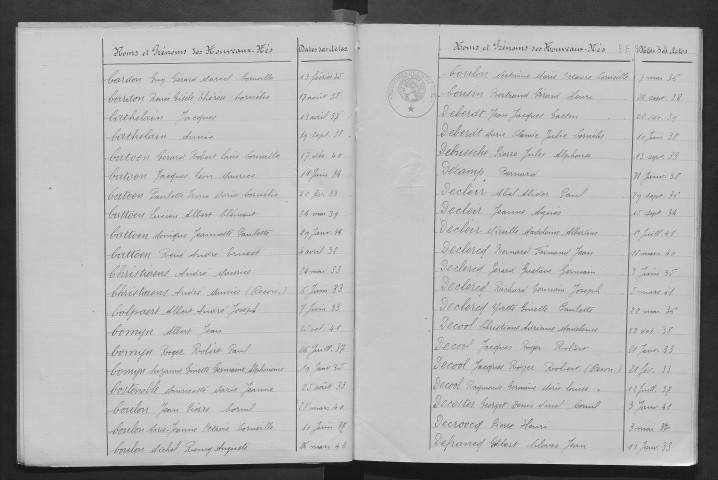 Noms et Prénoms des Nouveaux-Nés Dates des actes
Cardon Guy Gérard Marcel Corneille 13 février 35
Cardon Denis Gisèle Thérèse Cornélie 17 août 38
Cathelain Jacques 13 avril 37
Cathelain Annie 29 sept. 38
Catoen Gérard Robert Louis Corneille 17 déc. 40
Catoen Jacques Léon Maurice 18 juin 34
Catoen Paulette Irma Marie Cornélie 22 fév. 33
Cattoen Lucien Albert Clément 26 mai 39
Cattoen Monique Jeannette Paulette 29 janv. 34
Cattoen René André Ernest 4 avril 38
Christiaens André Maurice 24 mai 33
Christiaens André Maurice (Recon.) 6 juin 33
Colpaert Albert André Joseph 7 juin 33
Comyn Albert Jean oct. 41
Comyn Roger Robert Paul 26 juill. 37
Comyn Suzanne Ginette Germaine Alphonsine 19 janv. 35
Costenoble Antoinette Marie Jeanne 25 août 33
Coulon Jean Pierre Cornil 28 mars 41
Coulon Marie-Jeanne Octavie Corneille 10 juin 38
Coulon Michel Rémy Auguste 26 mars 43
Noms et Prénoms des Nouveaux-Nés Dates des actes
Coulon Marie Octavie Corneille 7 mai 36
Cousin Bertrand Gérard Henri 26 sept. 38
Deberdt Jean Jacques Gaston 22 déc. 39
Deberdt Marie Claude Julie Cornélie 10 juin 38
Debussche Pierre Jules Alphonse 13 sept. 33
Decamp Bernard 31 janv. 38
Declerr Abel Olivier Paul 29 sept. 36
Declerr Jeanne Agnès 15 sept. 34
Declerr Mireille Madeleine Albertine juill. 41
Declercq Bernard Fernand Jean 11 mars 40
Declercq Gérard Gustave Germain 3 juin 35
Declercq Richard Germain Joseph 5 mars 41
Declercq Yvette Ginette Paulette 22 mai 36
Decool Christiane Adrienne Madeleine 22 déc. 38
Decool Jacques Roger Robert 21 janv. 33
Decool Jacques Roger Robert (Recon.) 21 fév. 33
Decool Raymonde Germaine Marie Louise 12 juill. 37
Decoster Georges Denis Cornil 3 janv. 41
Decroocq Pierre Henri 3 mai 37
Defrancq Gilbert Clovis Jean 11 janv. 33